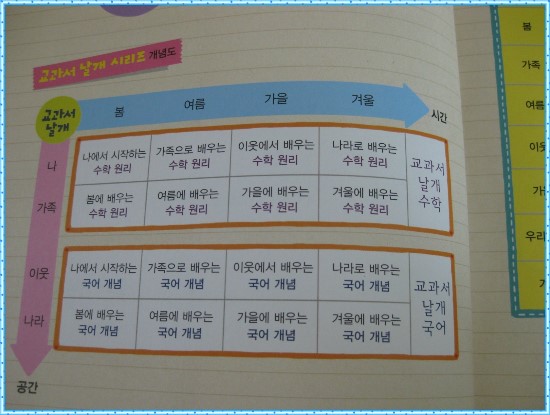 교과서 날개 시리즈 개념도
교과서
날개
봄 여름 가을 겨울
시간
나
가족
이웃
나라
공간
나에서 시작하는
수학 원리
가족으로 배우는
수학 원리
이웃에서 배우는
수학 원리
나라로 배우는
수학 원리
봄에 배우는
수학 원리
여름에 배우는
수학 원리
가을에 배우는
수학 원리
겨울에 배우는
수학 원리
교과서
날개
수학
나에서 시작하는
국어 개념
가족으로 배우는
국어 개념
이웃에서 배우는
국어 개념
나라로 배우는
국어 개념
봄에 배우는
국어 개념
여름에 배우는
국어 개념
가을에 배우는
국어 개념
겨울에 배우는
국어 개념
교과서
날개
국어
봄
가족
여름